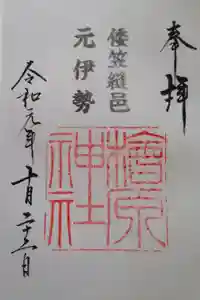 奉拝
倭笠縫邑
元伊勢
檜原
神社
令和元年十月二十六日